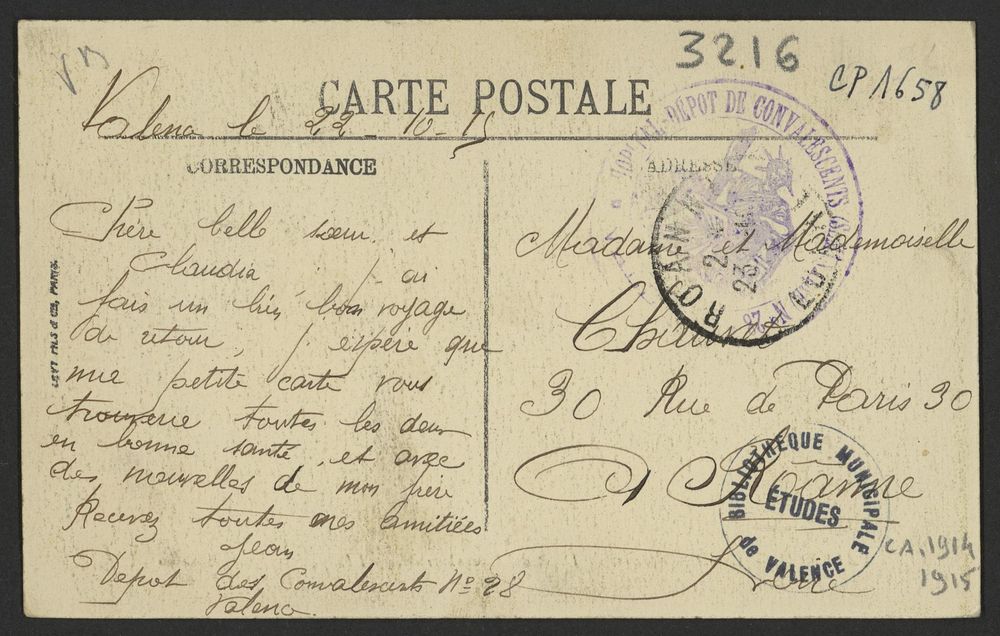 3216
CP 1658
CARTE POSTALE
Valence le 22-10-15
CORRESPONDANCE
ADRESSE
HOPITAL-DÉPOT DE CONVALESCENTS
N° 28
ROANNE
23
LOIRE
Chère belle sœur et
Claudia j'ai
fais un très bon voyage
de retour, j'espère que
ma petite carte vous
trouverie toutes les deux
en bonne santé, et avec
des nouvelles de mon frère
Recevez toutes mes amitiées
Jean
Depot des Convalescents N° 28
Valence.
LEVY FILS & CIE, PARIS
Madame et Mademoiselle
30 Rue de Paris 30
A Roanne
Loire
BIBLIOTHÈQUE MUNICIPALE
ÉTUDES
de VALENCE
CA.1914
1915